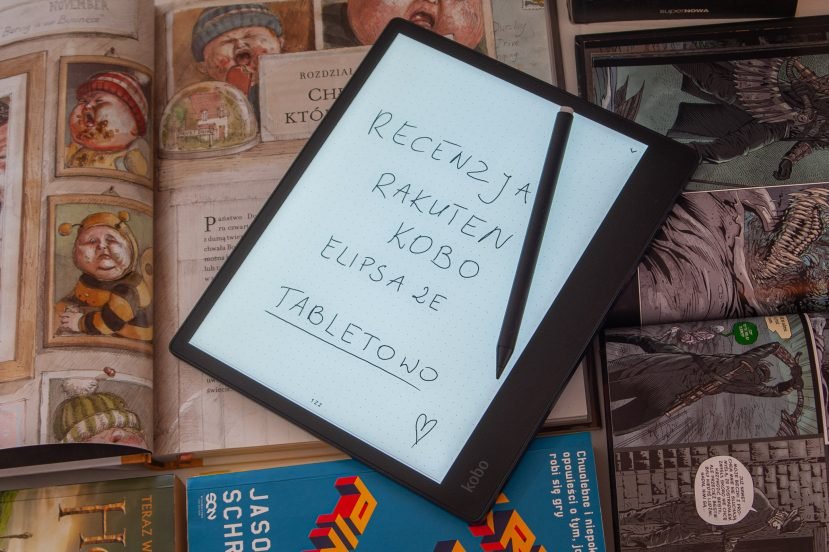 NOVEMBER
ROZDZIA
CH
KTÓ
superNOWA
RECENZJA
RAKUTEN
KOBO
ELIPSA 2E
TABLETOWO
122
kobo
Państwo
TERAZ W
SQN
JASO
SCHR
Chwalebne i niepok
opowieści o tym, ja
robi się gry